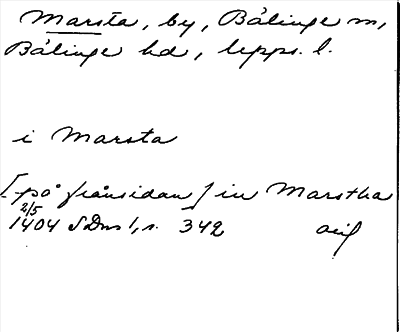 Marsta, by, Bälinge sn,
Bälinge hd, Upps. l.
i Marsta
[på frånsidan] in Marstha
2/5
1404 SDns 1, s. 342